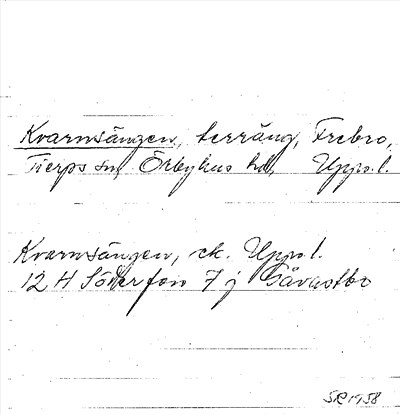 Kvarnsängen, terräng, Frebro,
Tierps sn, Örbyhus hd, Uppv. l.
Kvarnsängen, ek. Uppv. l.
12 H Söderfors 7 j Gåvastbo
SR 1958